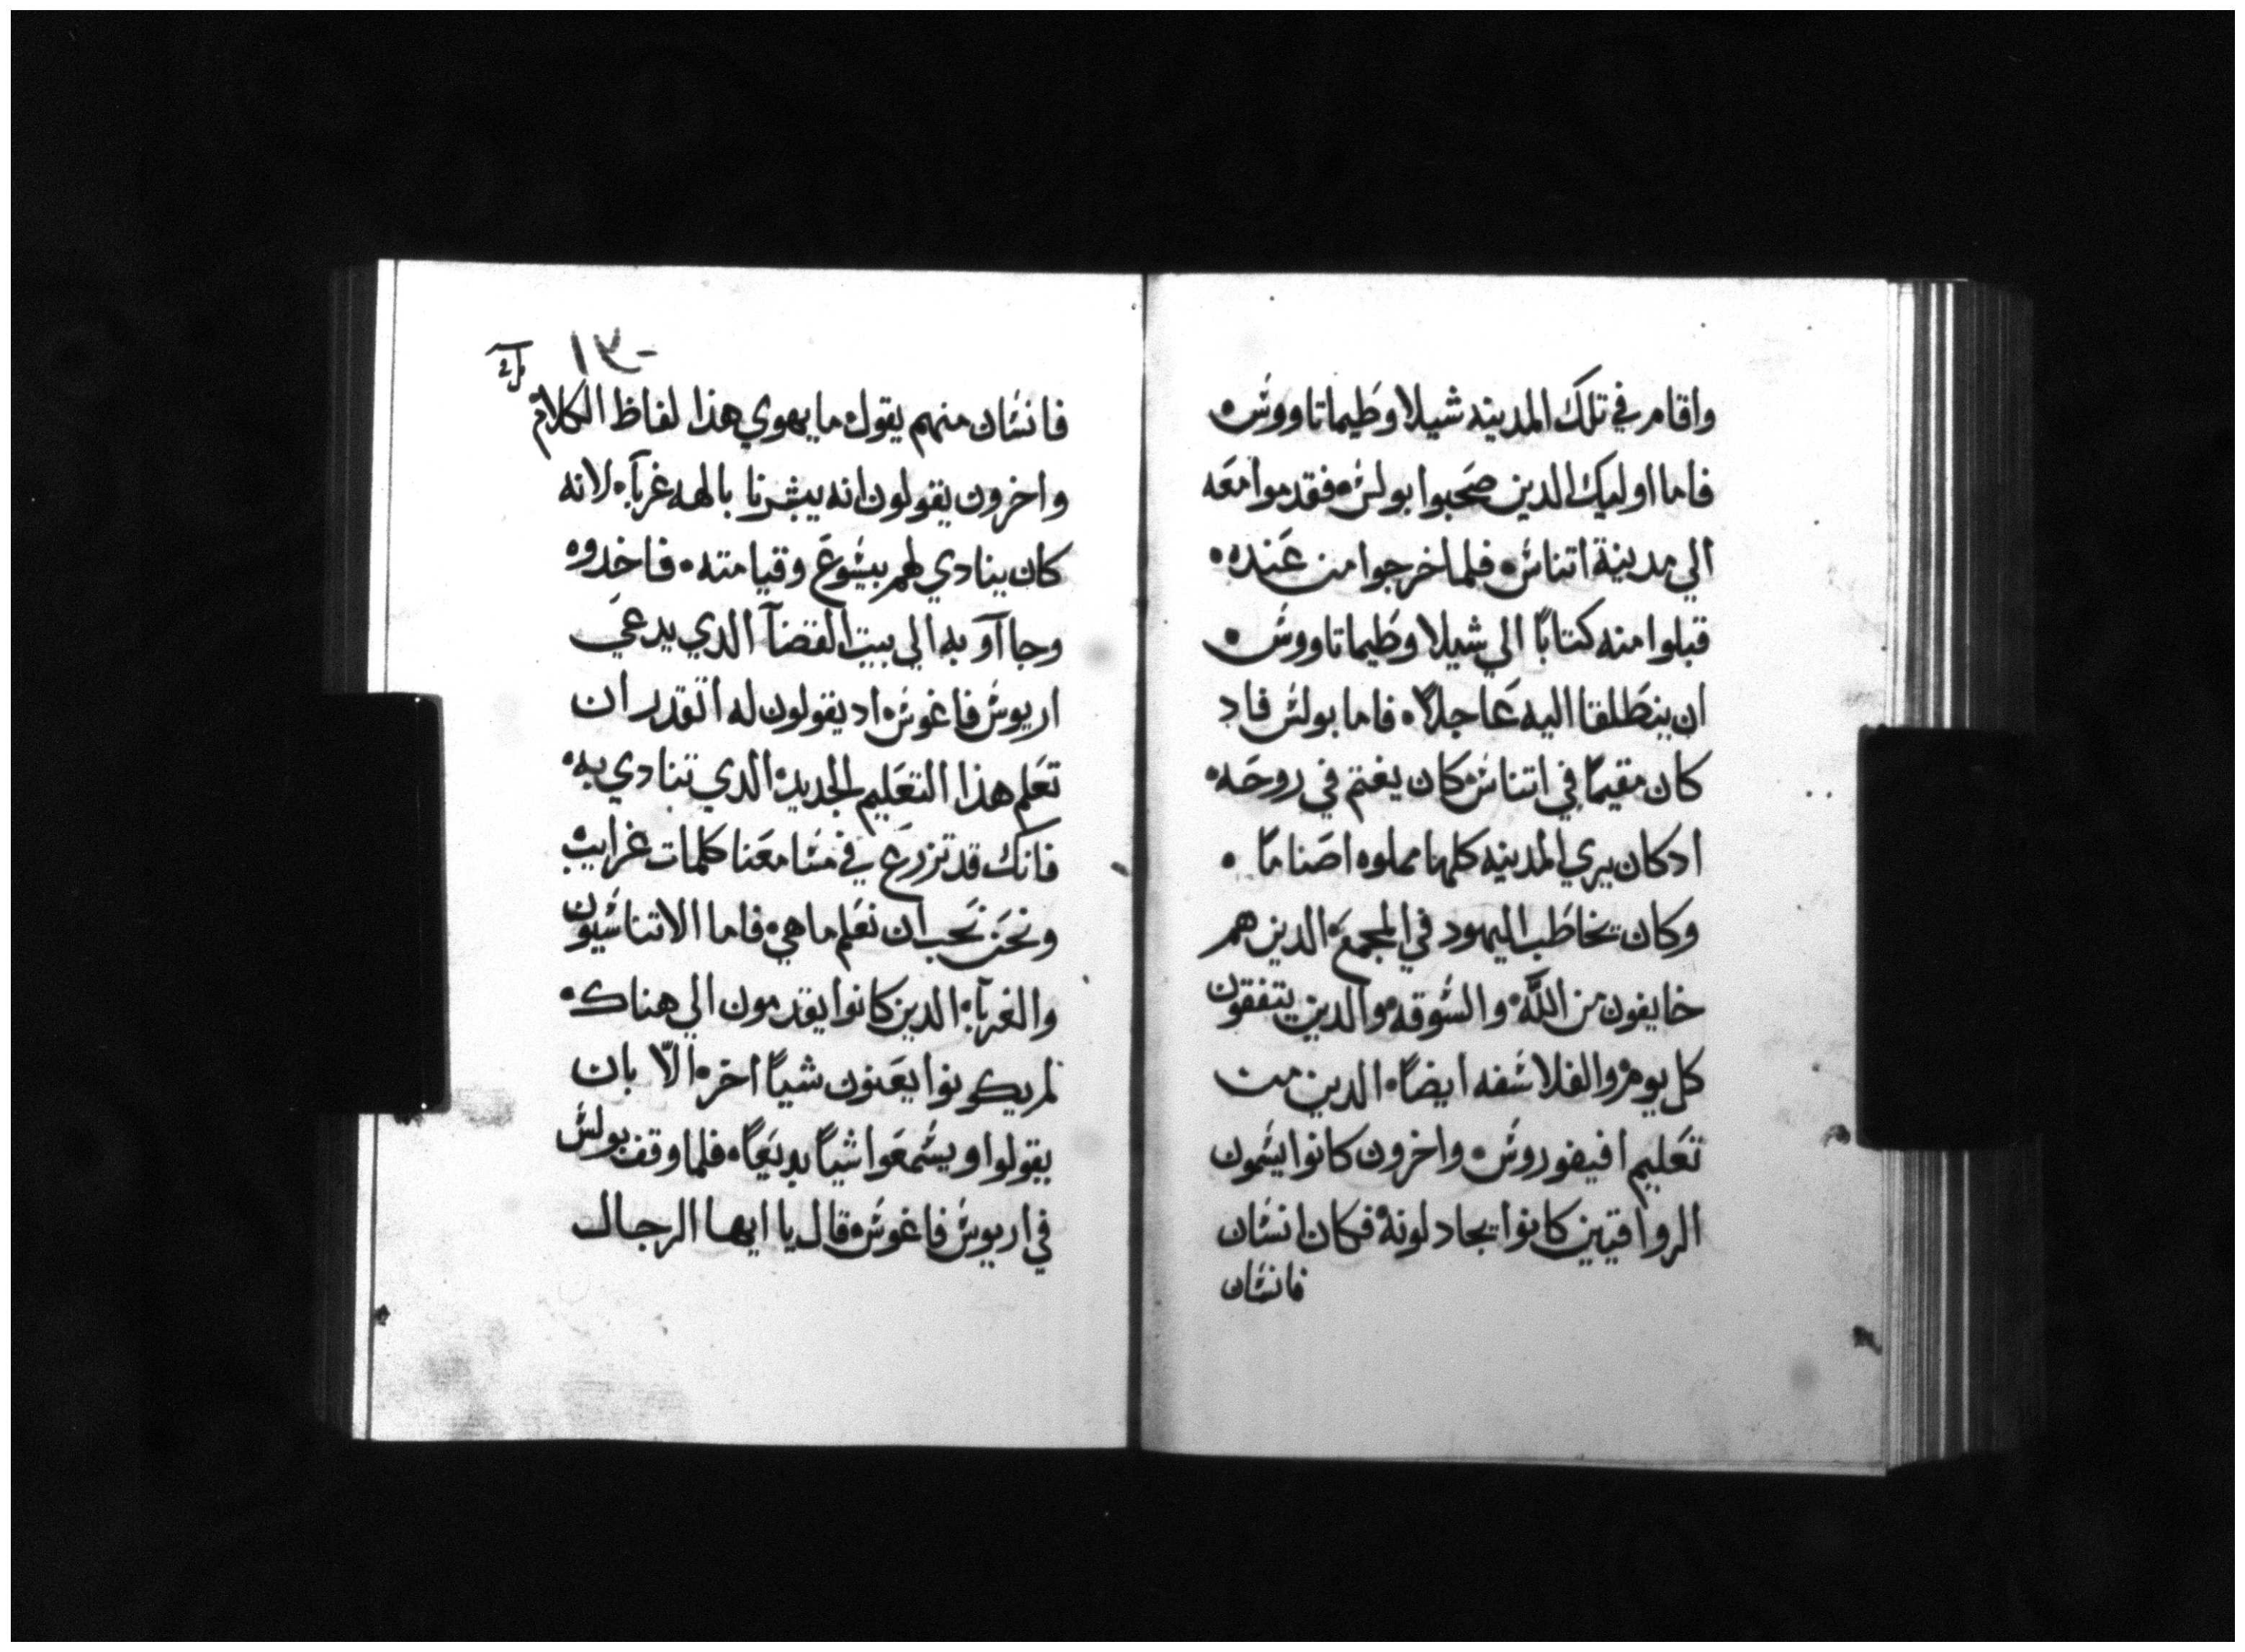 واقام في تلك المدينه شيلا وطيماتاووش
فاما اوليك الدين صحبوا بولش فقدموا معه
الي مدينة اتناش فلما خرجوا من عنده
قبلوا منه كتابًا الي شيلا وطيماتاووش
ان ينطلقا اليه عاجلاً فاما بولش فاد
كان مقيمًا في اتناش كان يغتم في روحه
ادكان يري المدينه كلها مملوه اصنامًا
وكان يخاطب اليهود في المجمع الدين هم
خايفون من اللّه والشوقه والدين يتفقون
كل يوم والفلاشفه ايضًا الدين من
تعليم افيفوروش واخرون كانوا يشمون
الرواقيين كانوا يجادلونه فكان انشان
فانشان
١٣٠
فانشان منهم يقول ما يهوي هذا لفاظ الكلام
واخرون يقولون انه يبشرنا بالهه غربآ لانه
كان ينادي لهم بيشوع وقيامته فاخدوه
وجاآو به الي بيت القضآ الدي يدعي
اريوش فاغوش اد يقولون له اتقدر ان
تعلم هذا التعليم الجديد الدي تنادي به
فانك قد تزرع في مشامعنا كلمات غرايب
ونحن نحب ان نعلم ما هي فاما الاتناشيون
والغربآ الدين كانوا يقدمون الي هناك
لم يكونوا يعنون شيًا اخر الّا بان
يقولوا ويشمعوا شيًا بديعًا فلما وقف بولش
في اريوش فاغوش قال يا ايها الرجال